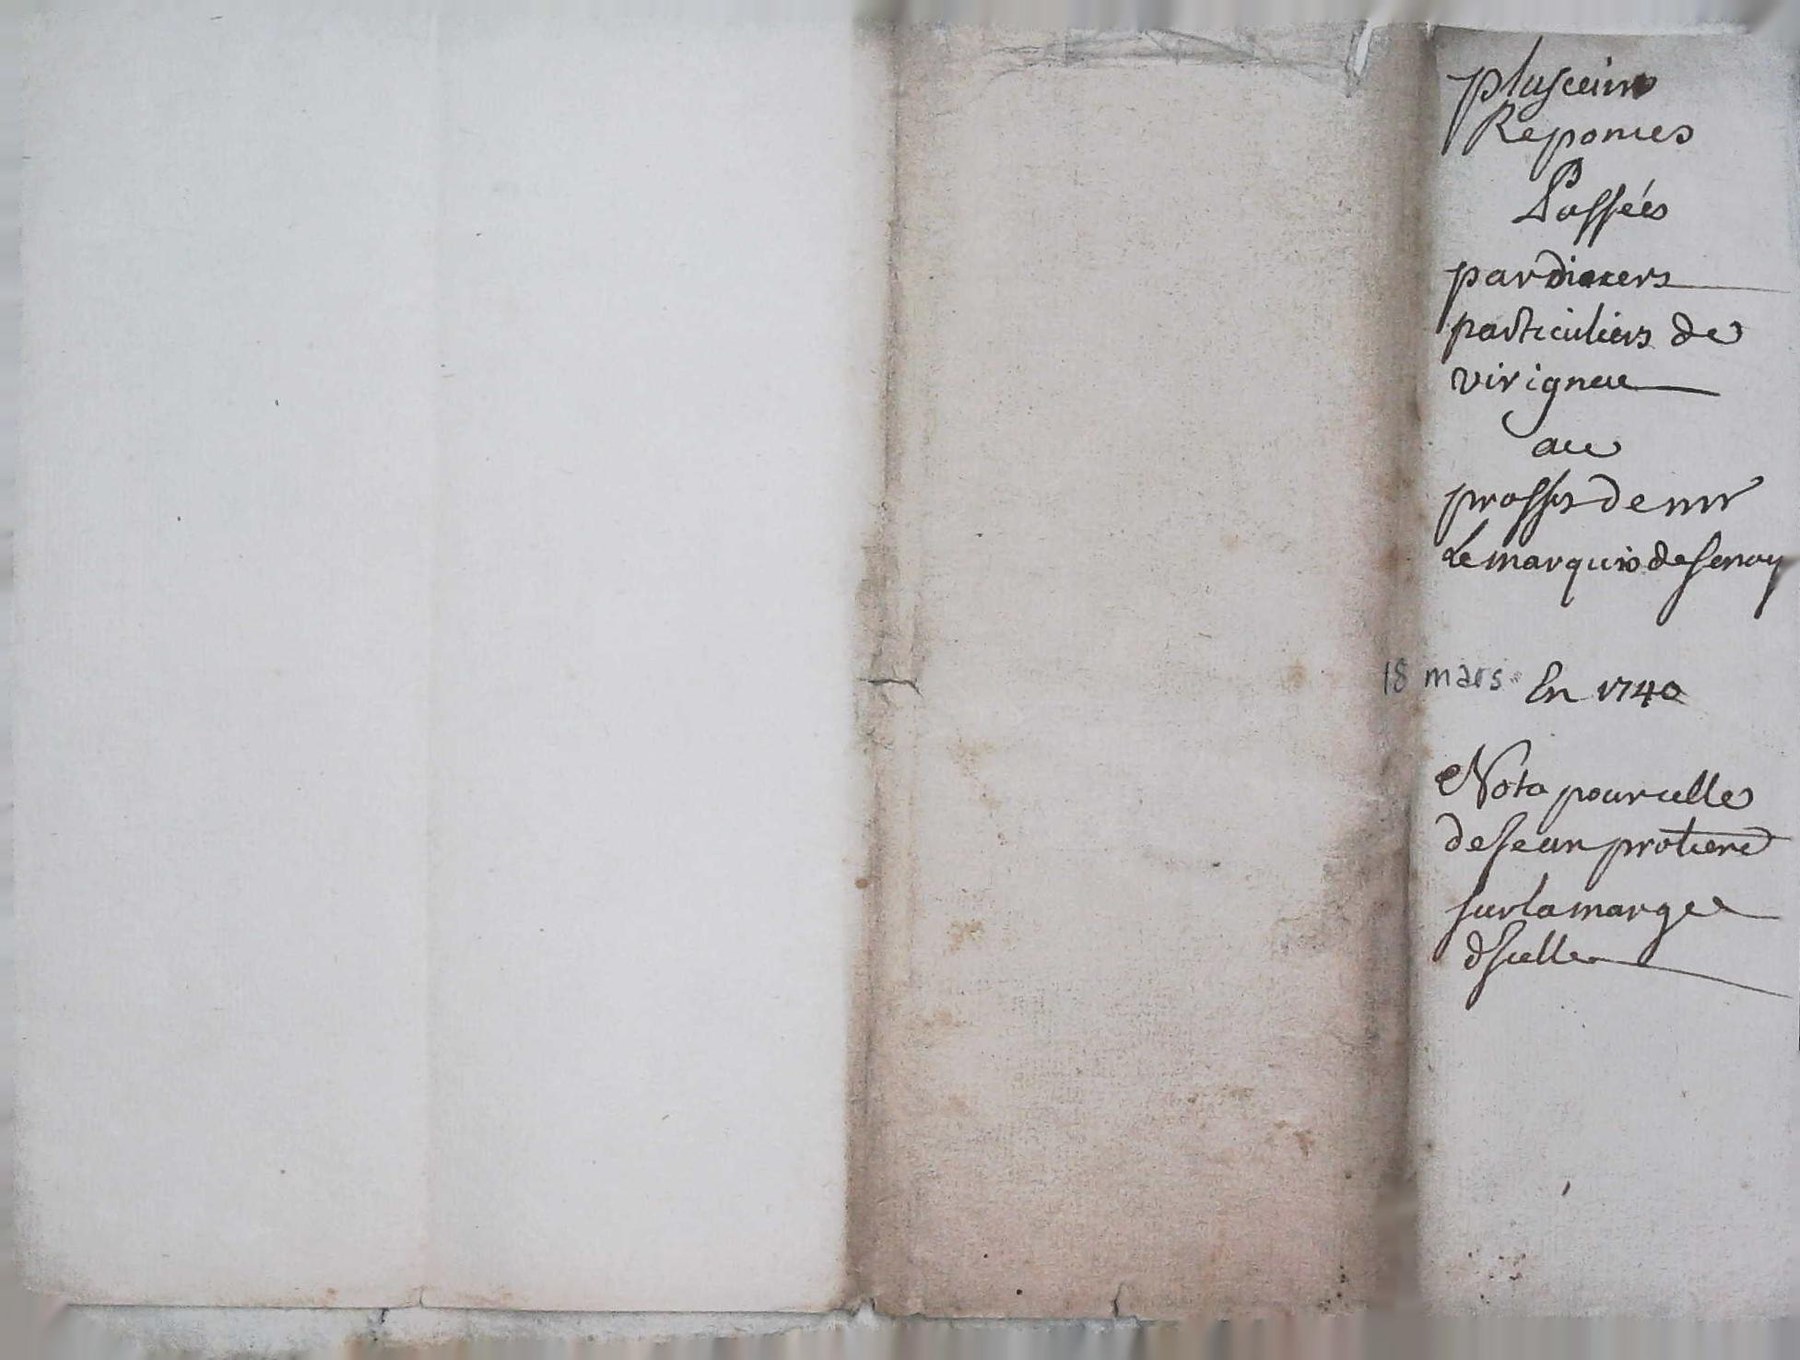 plusceurs
Reponces
Passées
par divers
particuliers de
virigneu
au
proffit de mr
Le marquis de Senoy
18 mars En 1740
Nota pour celle
de Jean protiere
sur la marge
d'icelle